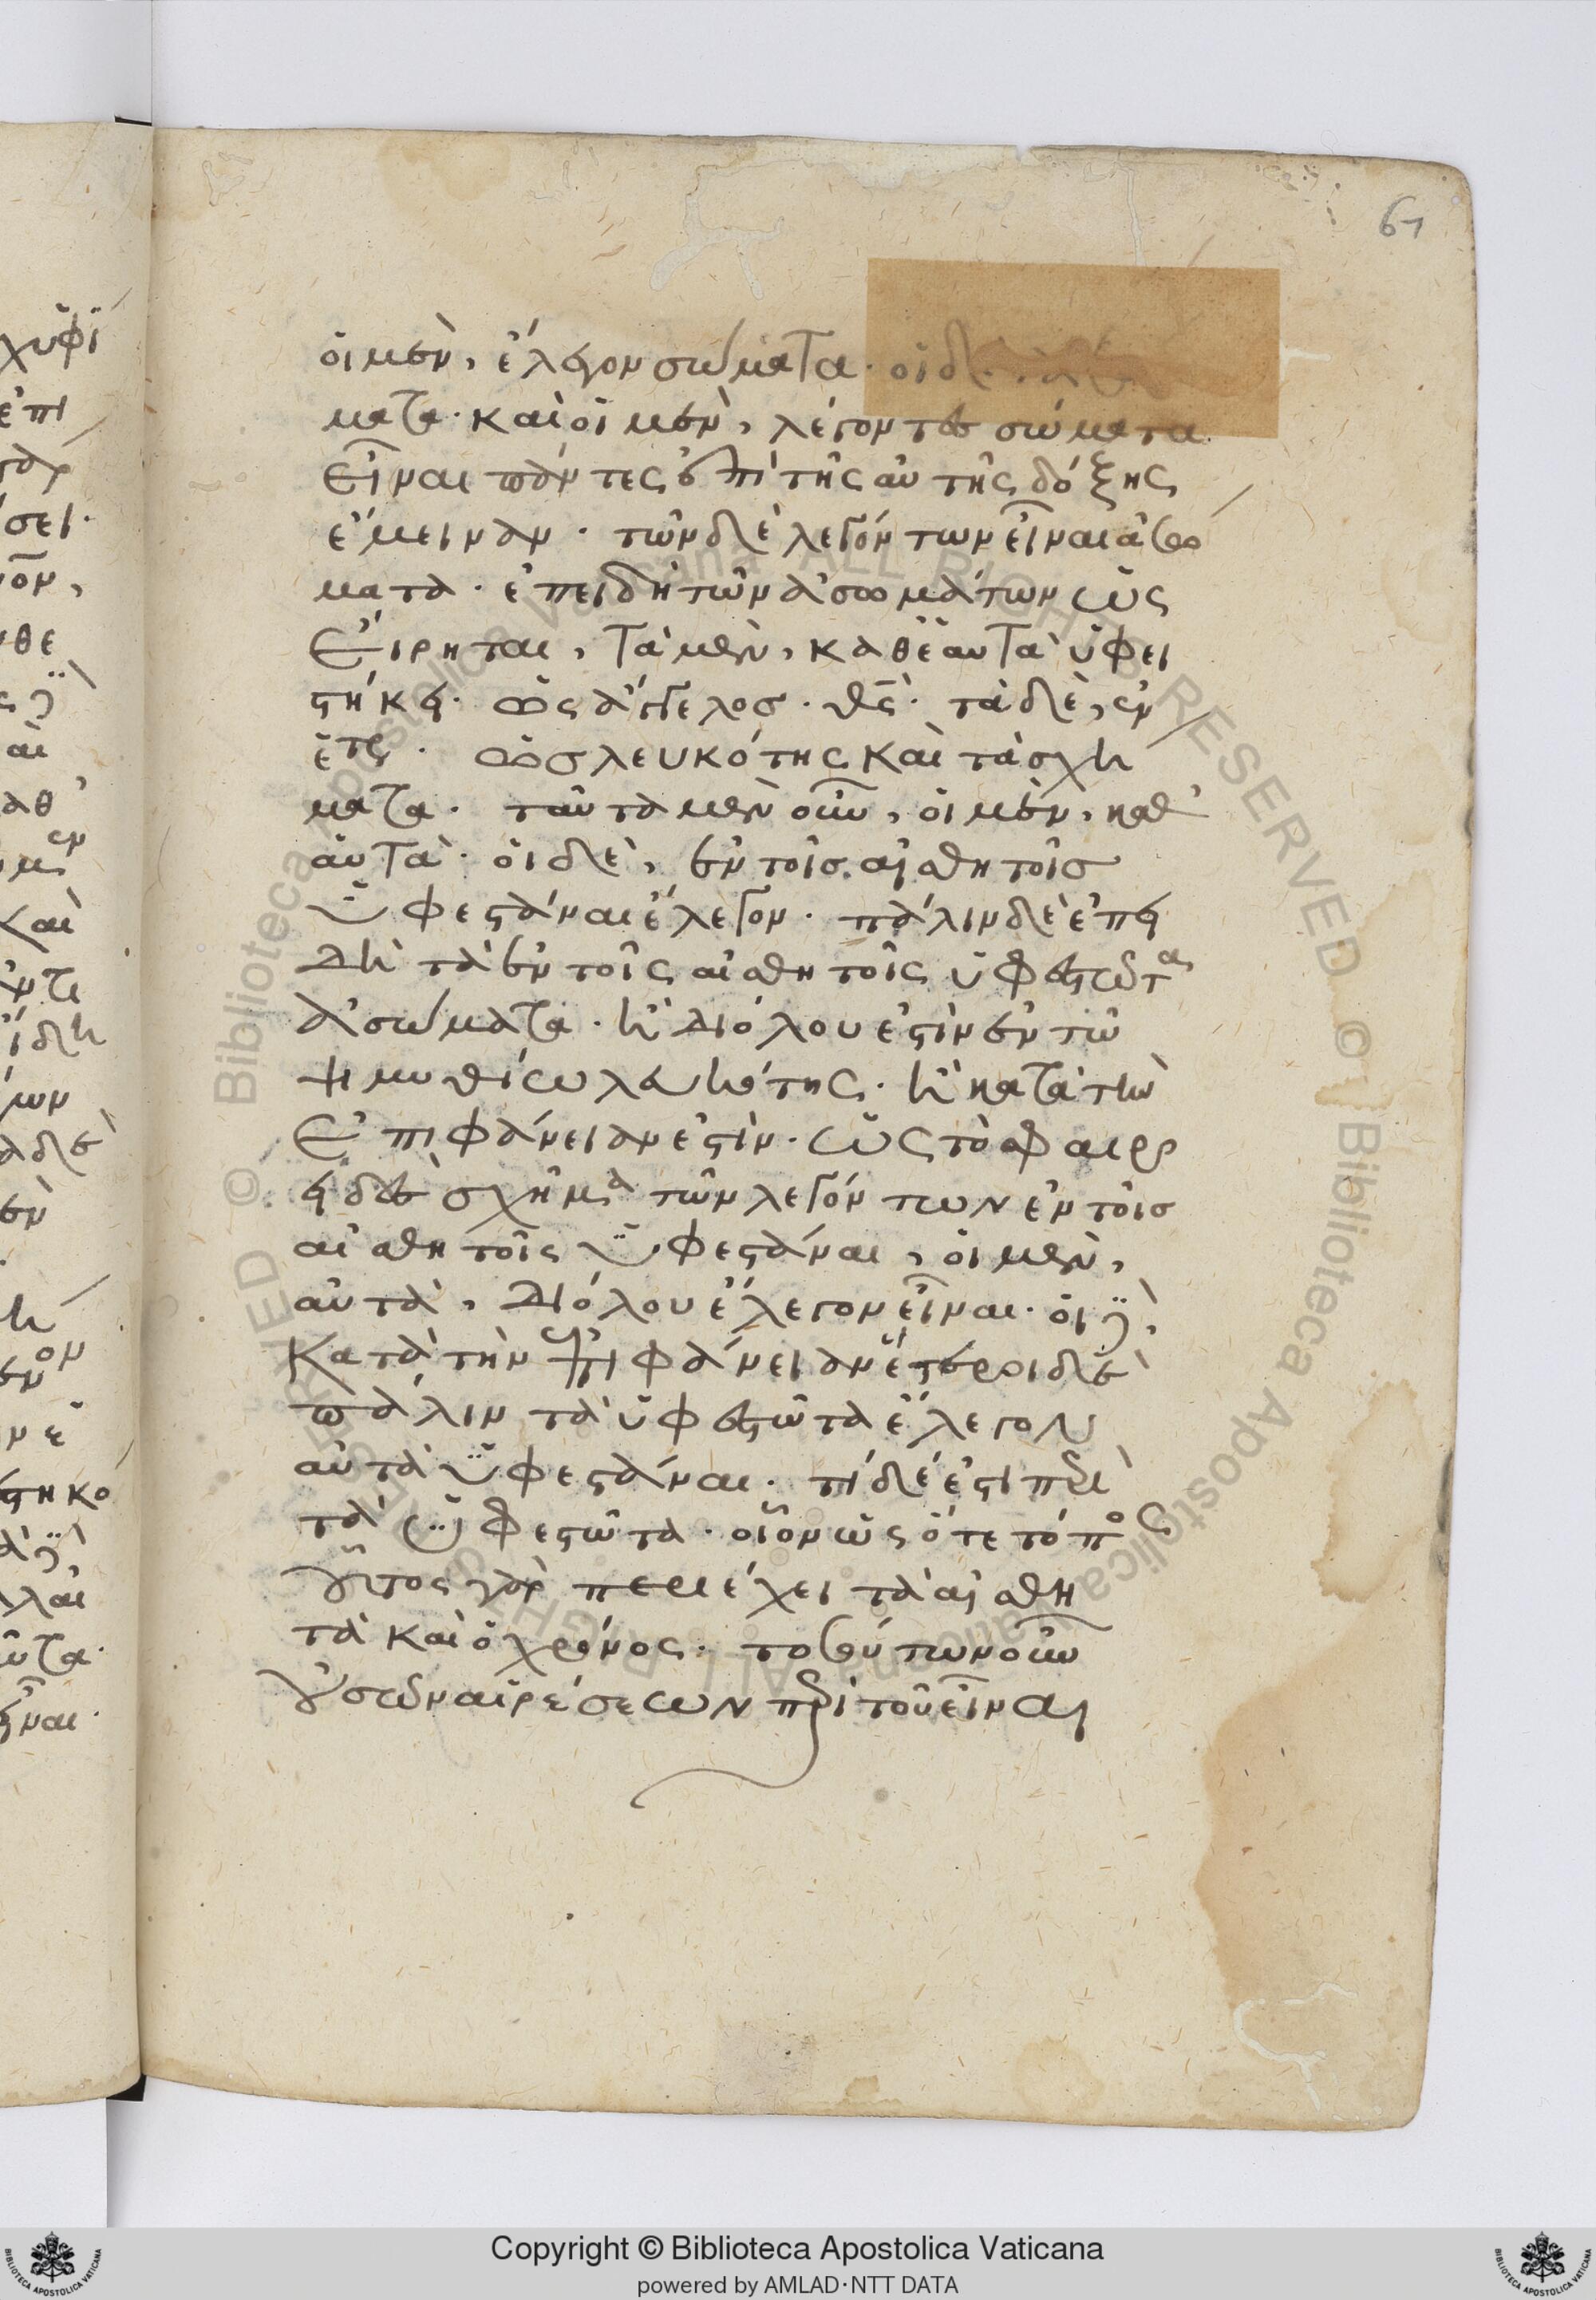 61
οἱ μὲν, ἔλεγον σώματα· οἱ δὲ
ματα· καὶ οἱ μὲν, λέγοντες σώματα
εἶναι πάντες ἐπὶ τῆς αὐτῆς δόξης
ἔμειναν· τῶν δὲ λεγόντων εἶναι ἀσώ
ματα· ἐπειδὴ τῶν ἀσωμάτων ὡς
εἴρηται, τὰ μὲν, καθ' ἑαυτὰ ὑφει
στήκει· ὡς ἄγγελος· θς· τὰ δὲ, ἐν
ἑτ· ὡς λευκότης καὶ τὰ σχή
ματα· ταῦτα μὲν οὖν, οἱ μὲν, καθ'
αὑτὰ· οἱ δὲ, ἐν τοῖς αἰσθητοῖς
ὑφεστάναι ἔλεγον· πάλιν δὲ ἐπει
δὴ τὰ ἐν τοῖς αἰσθητοῖς ὑφεστῶτα
ἀσώματα· ἢ διόλου ἐστὶν ἐν τῶ
ψιμυθίω λευκότης· ἢ κατὰ τὴν
ἐπιφάνειαν ἐστὶν· ὡς τὸ σφαιρο
ειδὲς σχῆμα τῶν λεγόντων ἐν τοῖς
αἰσθητοῖς ὑφεστάναι, οἱ μὲν,
αὐτὰ, διόλου ἔλεγον εἶναι· οἱ δὲ,
κατὰ τὴν ἐπιφάνειαν ἕτεροι δὲ
πάλιν τὰ ὑφεστῶτα ἔλεγον
αὐτὰ ὑφεστάναι· τί δέ ἐστι περὶ
τὰ ὑφεστῶτα· οἷον ὡς ὅτε τόπος
οὗτος γὰρ περιέχει τὰ αἰσθη
τὰ καὶ ὁ χρόνος· τούτων οὖν
οὐσῶν αἱρέσεων περὶ τοῦ εἶναι
Copyright © Biblioteca Apostolica Vaticana
powered by AMLAD·NTT DATA